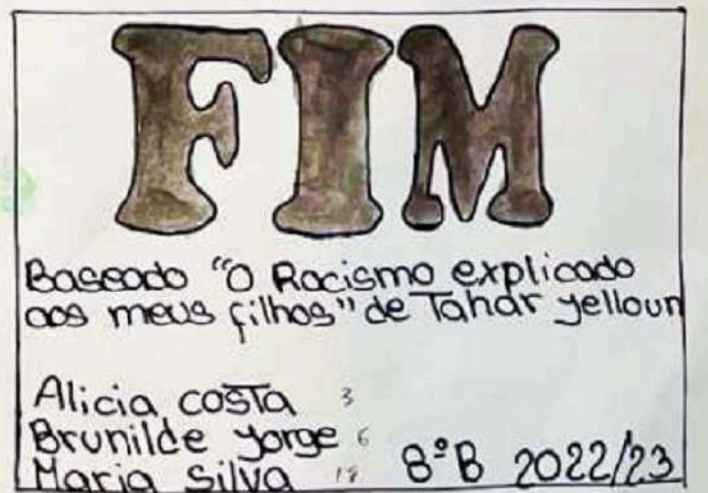 FIM
Baseado "O Racismo explicado
aos meus filhos" de Tahar Jelloun
Alicia costa 3
Brunilde Jorge 6
Maria Silva 18
8ºB 2022/23